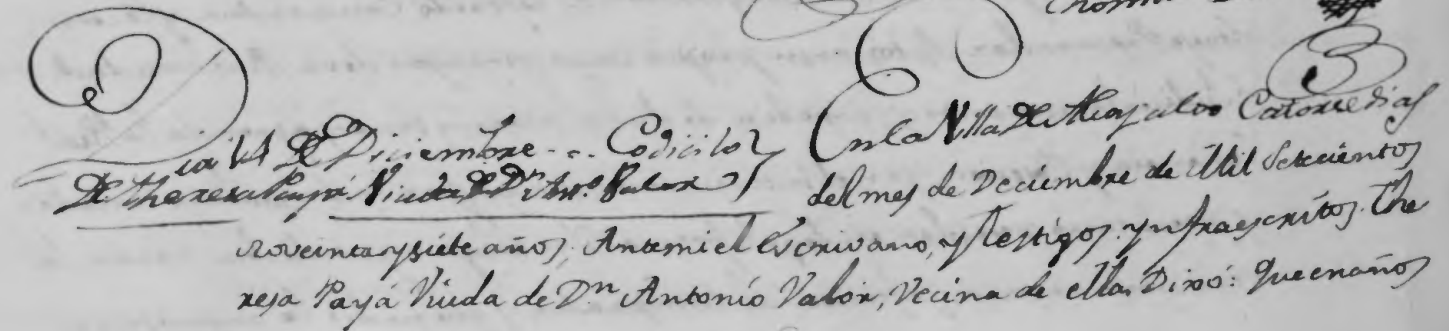 Dia 14 De Diciembre... Codicilos
De Theresa Payá Viuda De Dn Anto. Valor
En la Villa De Alcoy a los Catorze dias
del mes de Deciembre de Mil Setecientos
noveinta y siete años, Ante mi el Escrivano, y Testigos ynfraescritos The
resa Payá Viuda de Dn Antonio Valor, Vecina de ella, Dixo: Que en años